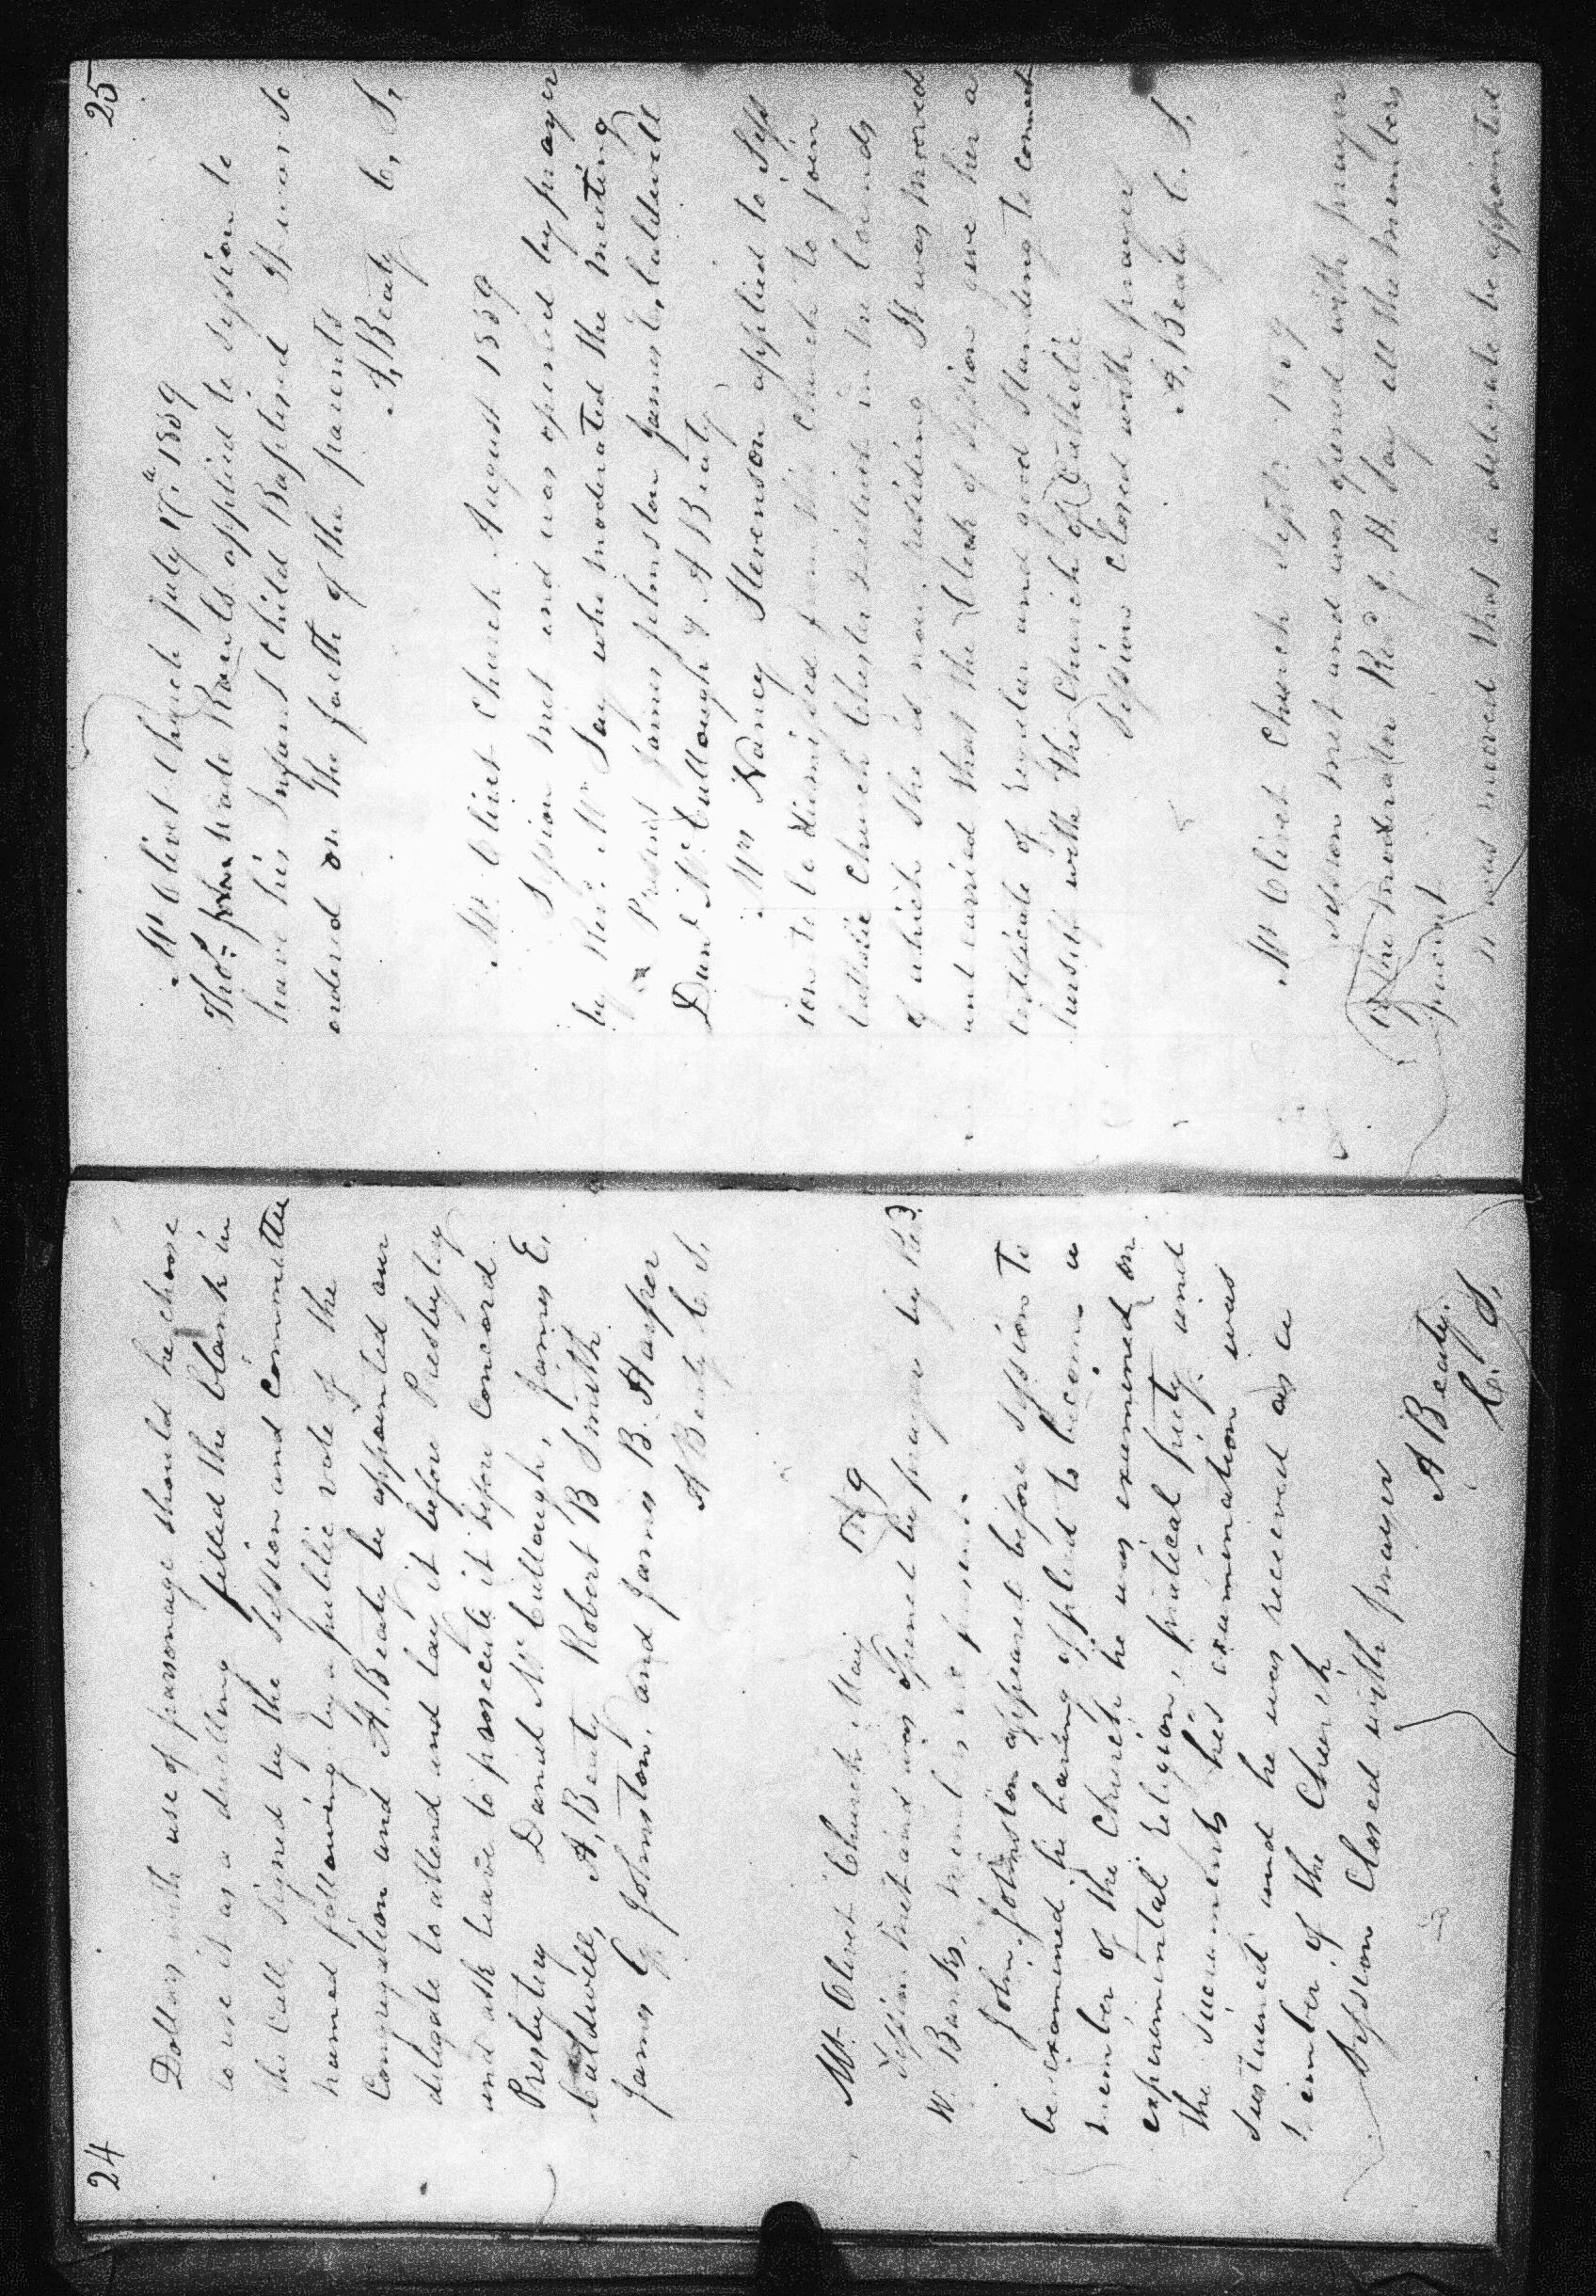 24
Dollars with use of parsonage should he choose
to use it as a dwelling filled the blank in
the Call signed by the Session and committee
named following by a public vote of the
Congregation and A. Beaty be appointed our
delegate to attend and lay it before Presbytery
and ask leave to prosecute it before Concord
Presbytery Daniel Mc Cullough, James E.
Caldwell, A. Beaty Robert B Smith
James G Johnston, and James B. Harper
A Beaty C. S.
Mt. Olivet Church May
Session met and was opened by prayer by Revd.
W. Banks, members all present.
John Johnston appeared before Session to
be examined he having applied to become a
member of the Church he was examined on
experimental religion, practical piety and
the sacraments his examination was
sustained and he was received as a
member of the Church
Session Closed with prayer
A Beaty.
C. S.
25
Mt Olivet Church July 17th 1859
Thos. Wade Rawls applied to Session to
have his Infant Child Baptised It was so
ordered on the faith of the parents
A, Beaty C, S,
Mt. Olivet Church August 1859
Session met and was opened by prayer
by Revd. Mr Say who moderated the meeting
Present James Johnston James E, Caldwell
Danl Mc Cullough & A Beaty
Mrs Nancy Stevenson applied to Sess
ion to be dismissed from this Church to join
Catholic Church Chester District in the bounds
of which she is now residing It was moved
and carried that the Clerk of Session give her a
Certificate of regular and good standing to connect
herself with the Church of Catholic
Session Closed with prayer
A, Beaty C. S,
Mt Olivet Church Sept.
Session met and was opened with prayer
by the moderator Revd J. H. Say all the members
present
It was moved that a delegate be appointed